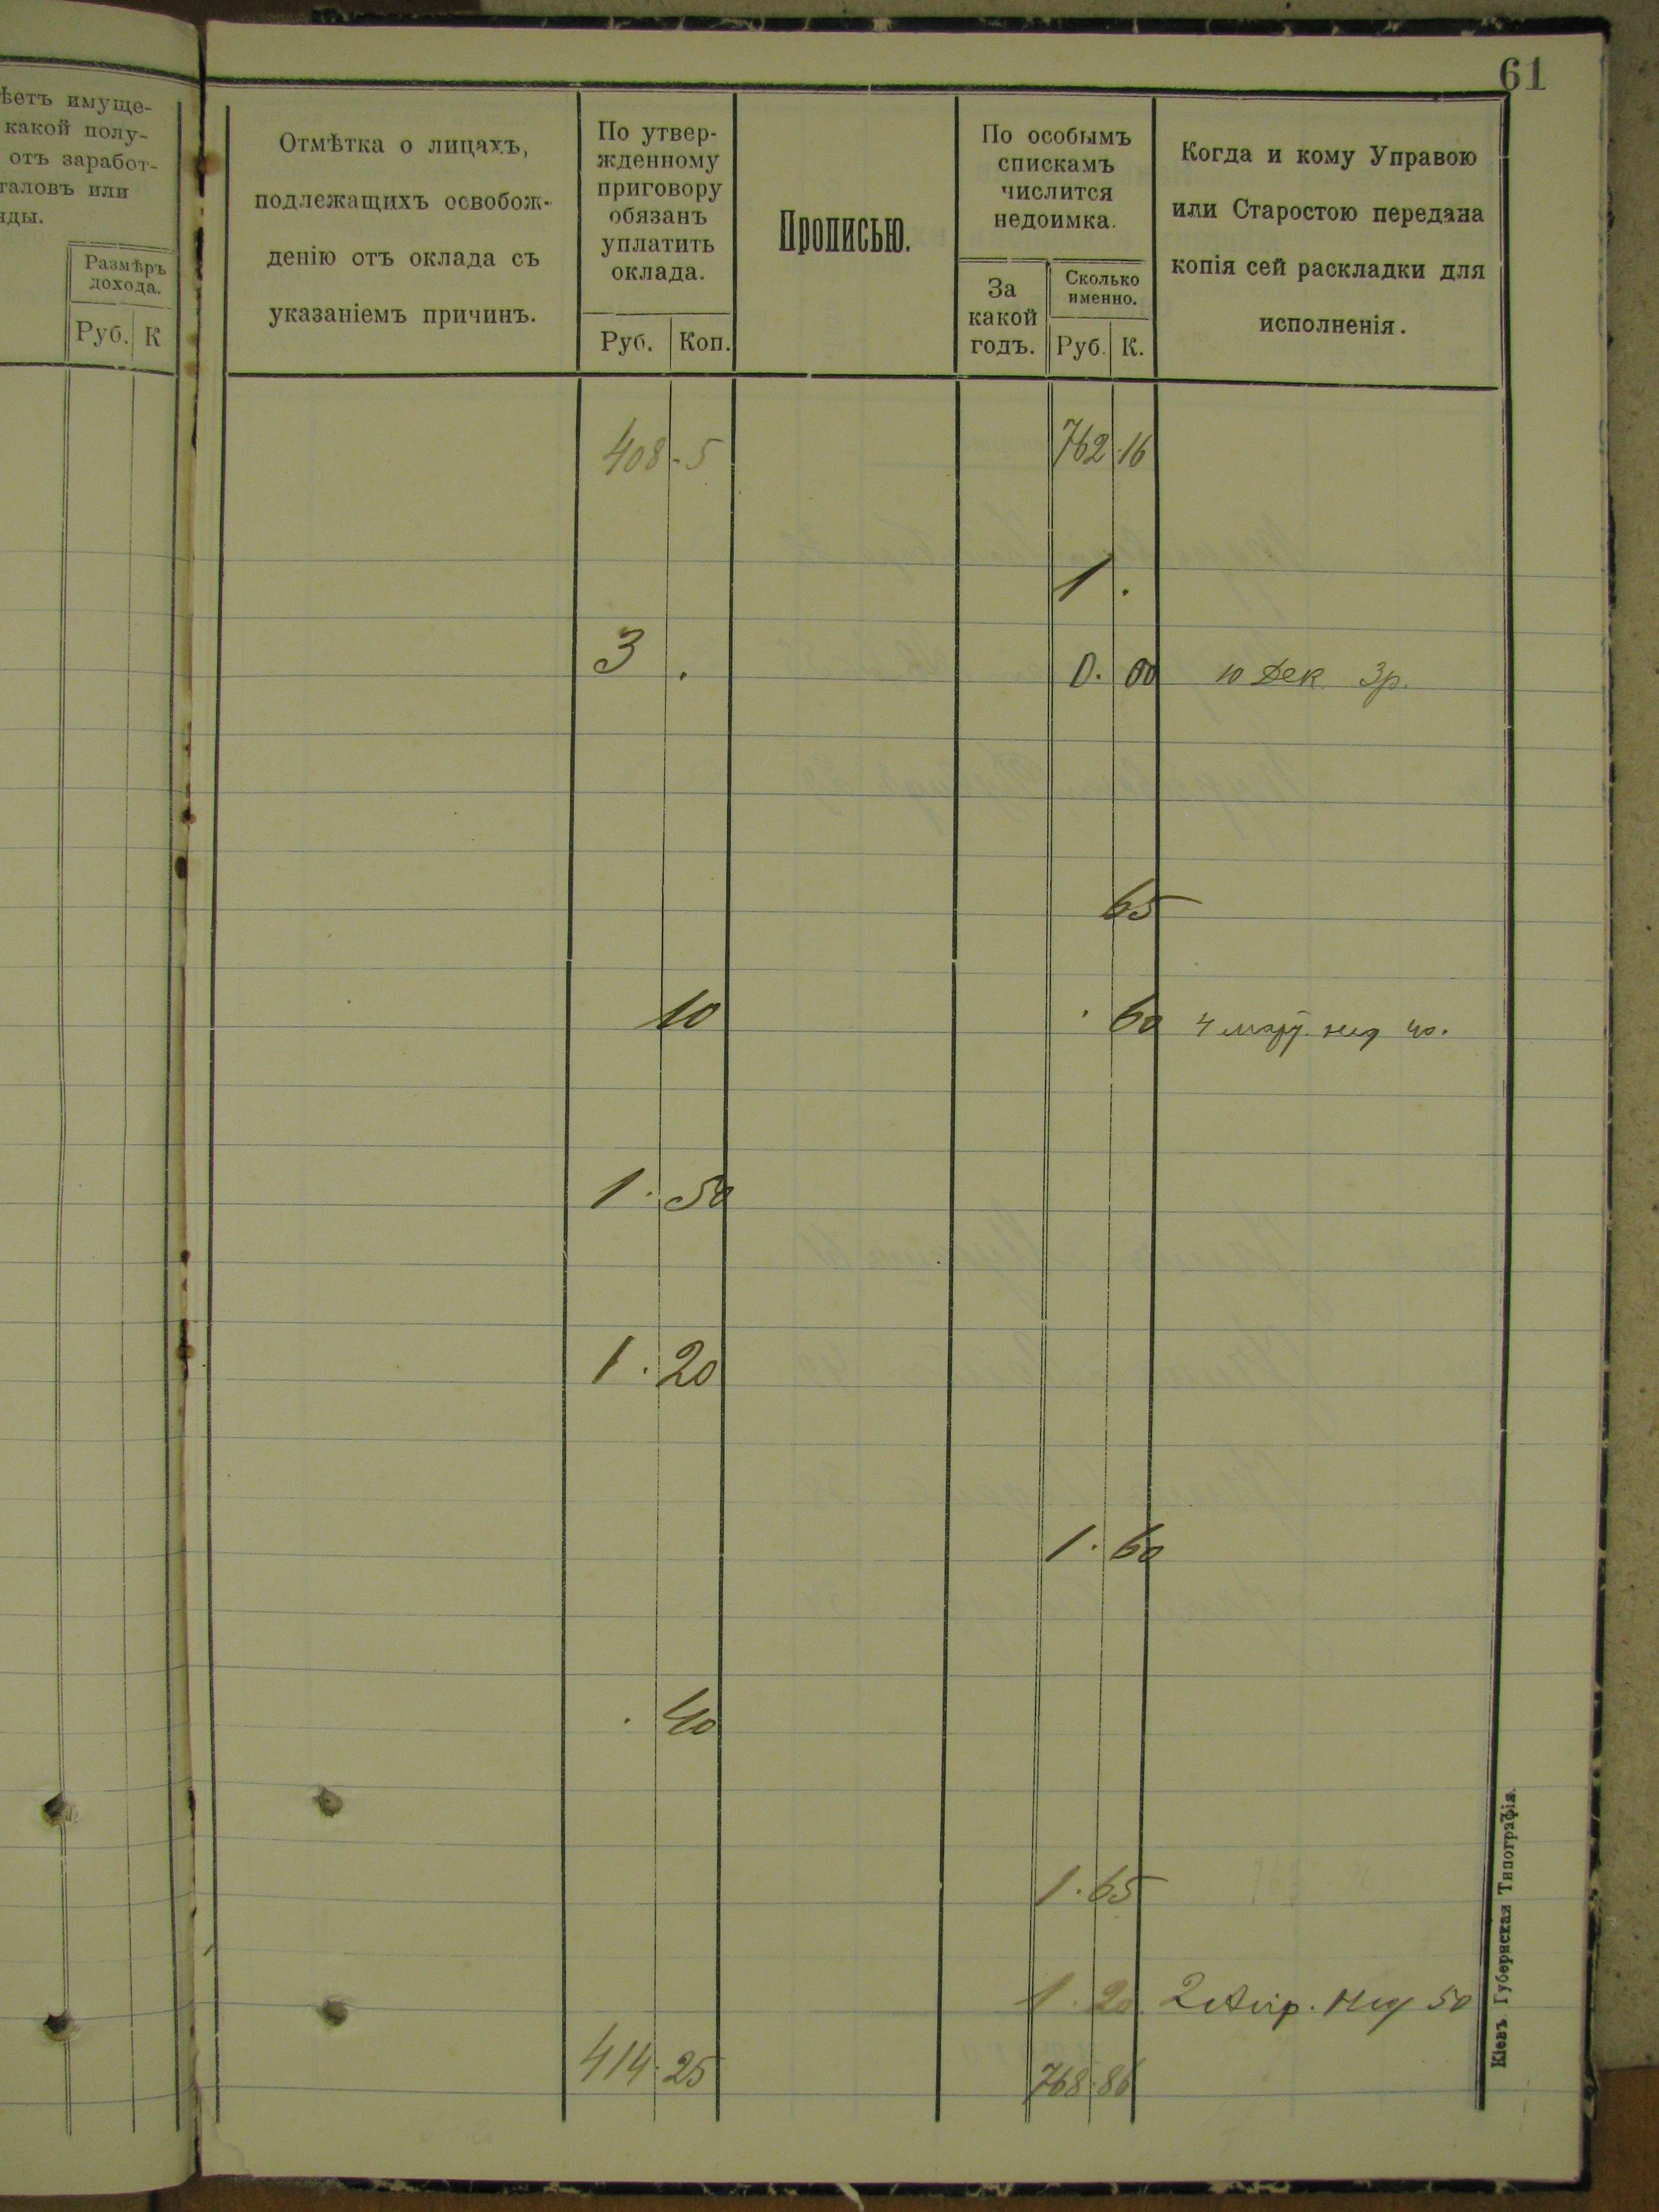 61
ѣетъ имуще-
какой полу-
отъ заработ-
таловъ или
нды.
Размѣръ
дохода.
Руб. К
Отмѣтка о лицахъ,
подлежащихъ освобож-
денію отъ оклада съ
указаніемъ причинъ.
По утвер-
жденному
приговору
обязанъ
уплатить
оклада.
Руб. Коп.
Прописью.
По особымъ
спискамъ
числится
недоимка.
За
какой
годъ.
Сколько
именно.
Руб. К.
Когда и кому Управою
или Старостою передана
копія сей раскладки для
исполненія.
408 - 5 762 . 16
1 .
3 . 0. 00 10 Дек. 3р.
65
10 . 60 4
1 . 50
1 . 20
1 . 60
. 40
1 . 65
1 . 20 2 Апр. 50
414 . 25 768 . 86
Кіевъ. Губернская Типографія.